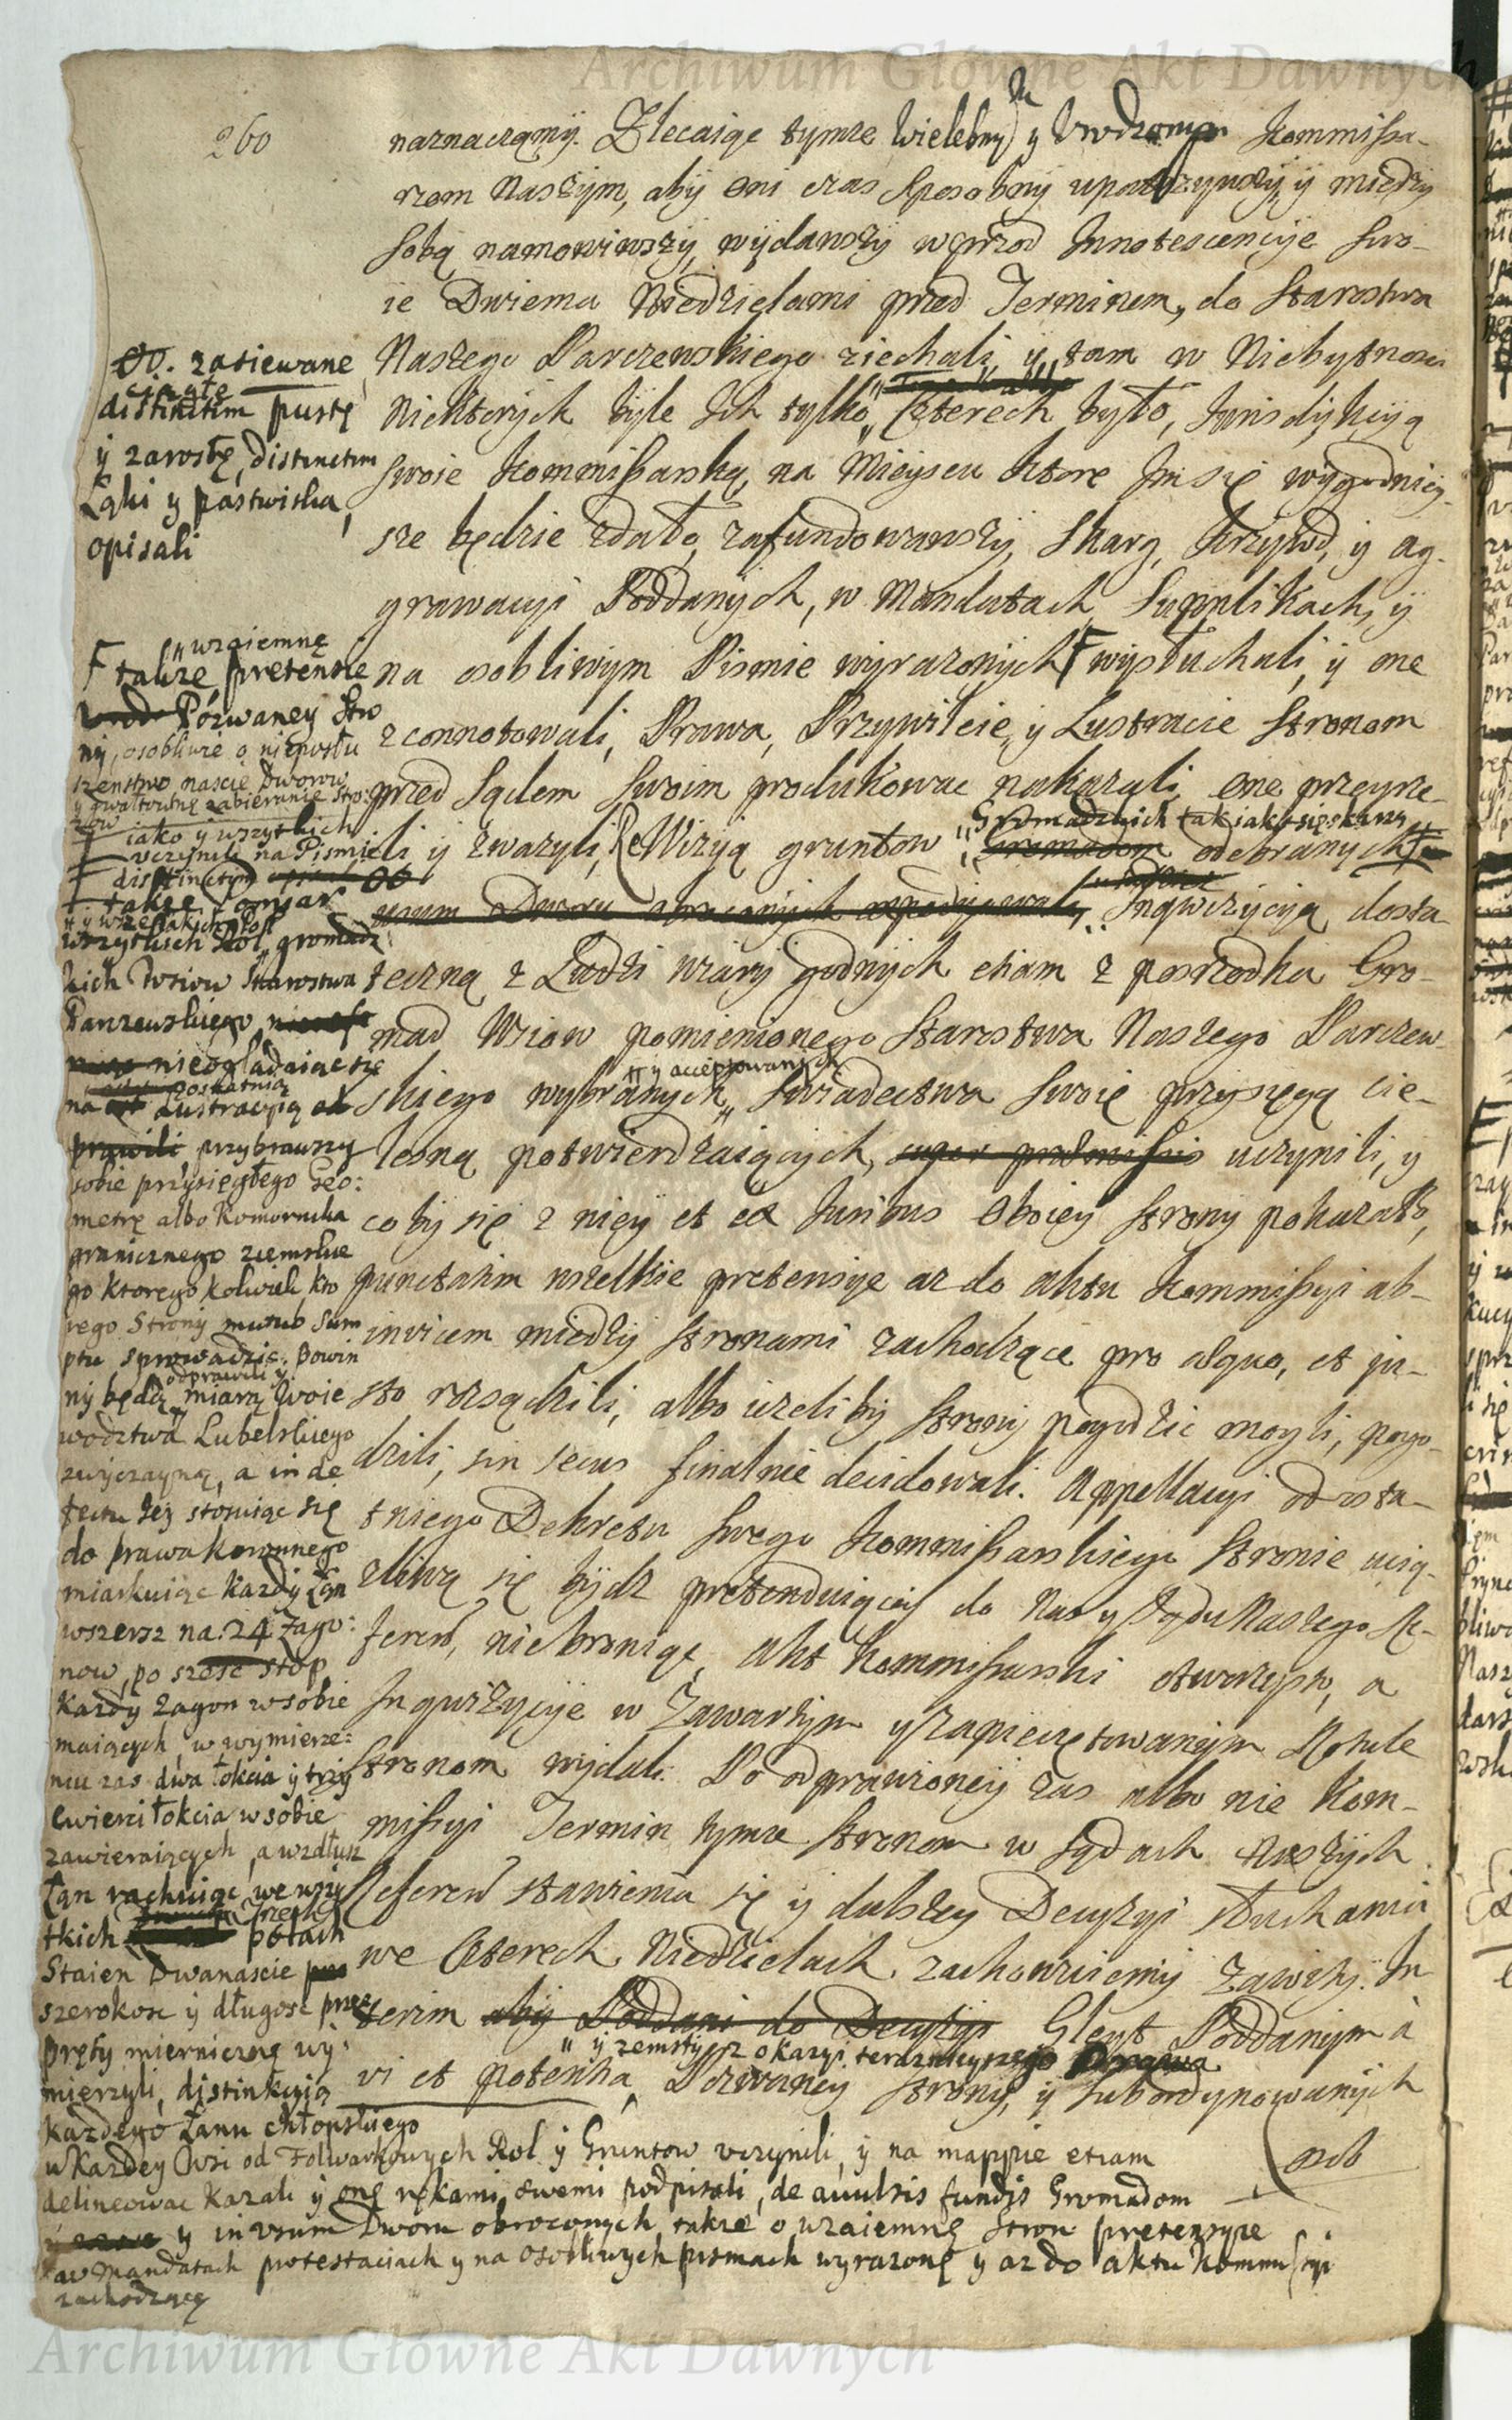 Archiwum Główne Akt Dawnych
260
naznaczamy. Zlecaiąc tymże Wielebny m y Urodzonym Kommissa-
rzom Naszym, aby oni czas sposobny upatrzywszy, y między
sobą namowiwszy, wydawszy wprzod Innotescencye swo-
ie Dwiema Niedzielami przed Terminem, do Starostwa
Naszego Parczewskiego ziechali, y tam w Niebytnosci
Niektorych byle Ich tylko Czterech było, Jurisdykcyą
Swoie Kommissarską, na Mieyscu ktore Im się wygodniey-
sze będzie zdało, zafundowawszy, Skarg, Krzywd, y ag-
grawacyi Poddanych, w Mandatach, Supplikach, y
na osobliwym Pismie wyrazonych F wysłuchali, y one
zconnotowali, Prawa, Przywileie, y Lustracie Stronom
przed Sądem Swoim produkowac nakazali, one przeyrze-
li y zwazyli, ReWizyą gruntow Gromadzkich tak iako się skarzą
Gromadom odebranych
usum Dworu obroconych expedyowali, Inqwizycyą dosta-
teczną z Ludzi wiary godnych etiam z posrzodka Gro-
mad Wsiow pomienionego Starostwa Naszego Parczew-
skiego wybranych, y acceptowanych Swiadectwa Swoie przysięgą cie-
lesną potwierdzaiących, super praemissis uczynili, y
co by się z niey et ex Juribus Oboiey Strony pokazało,
punctatim wszelkie pretensye az do aktu Kommissyi ab-
invicem między Stronami zachodzące pro aequo, et ju-
sto rozsądzili, albo iezeliby Strony pogodzic mogli, pogo-
dzili, sin secus finalnie decidowali. Appellacyi od osta-
tniego Dekretu Swego Kommissarskiego Stronie ucią-
zliwą się bydz pretenduiącey do Nas y Sądu Naszego Re-
ferend, niebroniąc, akt Kommissarski otworzysto, a
Inqwizycye w Zawartym y zapieczętowanym Rotule
Stronom wydali. Po odprawioney zas albo nie Kom-
missyi Termin tymze Stronom w Sądach Naszych
Referend stawienia się y dalszey Decyzyi słuchania
we Czterech Niedzielach zachowuiemy Zawity. In-
terim aby Poddani do Decyzyi Gleyt Poddanym à
vi et potentia y zemsty z okazyi terazniejszego Prawa Pozwaney Strony, y Subordynowanych
osob
OO. zasiewane
ciągłe
distinctim puste
y zarosłe, distinctim
Łąki y pastwiska,
opisali
F takze wzaiemne pretensie
Pozwaney Stro
ny, osobliwie o nieposłu
szenstwo nasze Dworow
y gwałtowne zabieranie
iako y wszytkich
uczynili na Pismie
distinctim OO
takze Pomiar
y wszelakich
wszytkich Rol gromadz
kich Wsiow Starostwa
Parczewskiego
nieoglądaiąc się
na ostatnią Lustracyią od
prawili przybrawszy
sobie przysięgłego Geo:
metrę albo Komornika
granicznego ziemskie
go ktoregokolwiek, kto
rego Strony Sum
ptu sprowadzic. Powin
ny będą odprawili y miarą Woie
wodztwa Lubelskiego
zwyczayną, a in de
fectu tey stosuiąc się
do prawa Koronnego
miarkuiąc kazdy Łan
wszersz na 24 Zago:
now, po szesc stop
Kazdy zagon w sobie
maiących, w wymierze:
niu zas dwa łokcia y trzy
cwierci łokcia w sobie
zawieraiących, a wzdłusz
Łan rachuiąc we wszy
tkich trzech polach
Staien Dwanascie
szerokosc y długosc przez
pręty miernicze wy:
mierzyli, distinkcyią
kazdego Łanu chłopskiego
w kazdey Wsi od Folwarkowych Rol y Gruntow uczynili, y na mappie etiam
delineowac kazali y onę rękami swemi podpisali, de avulsis fundis Gromadom
y in usum Dworu obroconych, takze o wzaiemne Stron pretensye
w Mandatach protestaciach y na osobliwych pismach wyrazone y az do aktu Kommissyi
zachodzące
Archiwum Główne Akt Dawnych